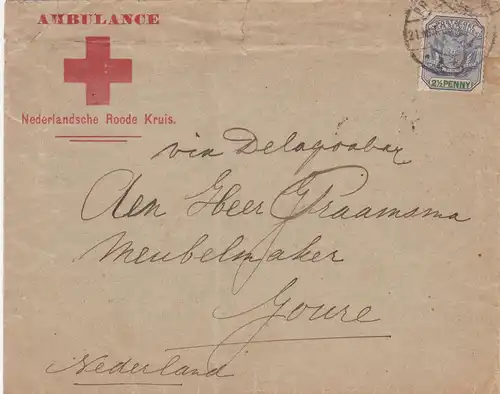 AMBULANCE
Nederlandsche Roode Kruis.
2½ PENNY
via Delagoabay
Den Heer Graamsma
Meubelmaker
Joure
Nederland